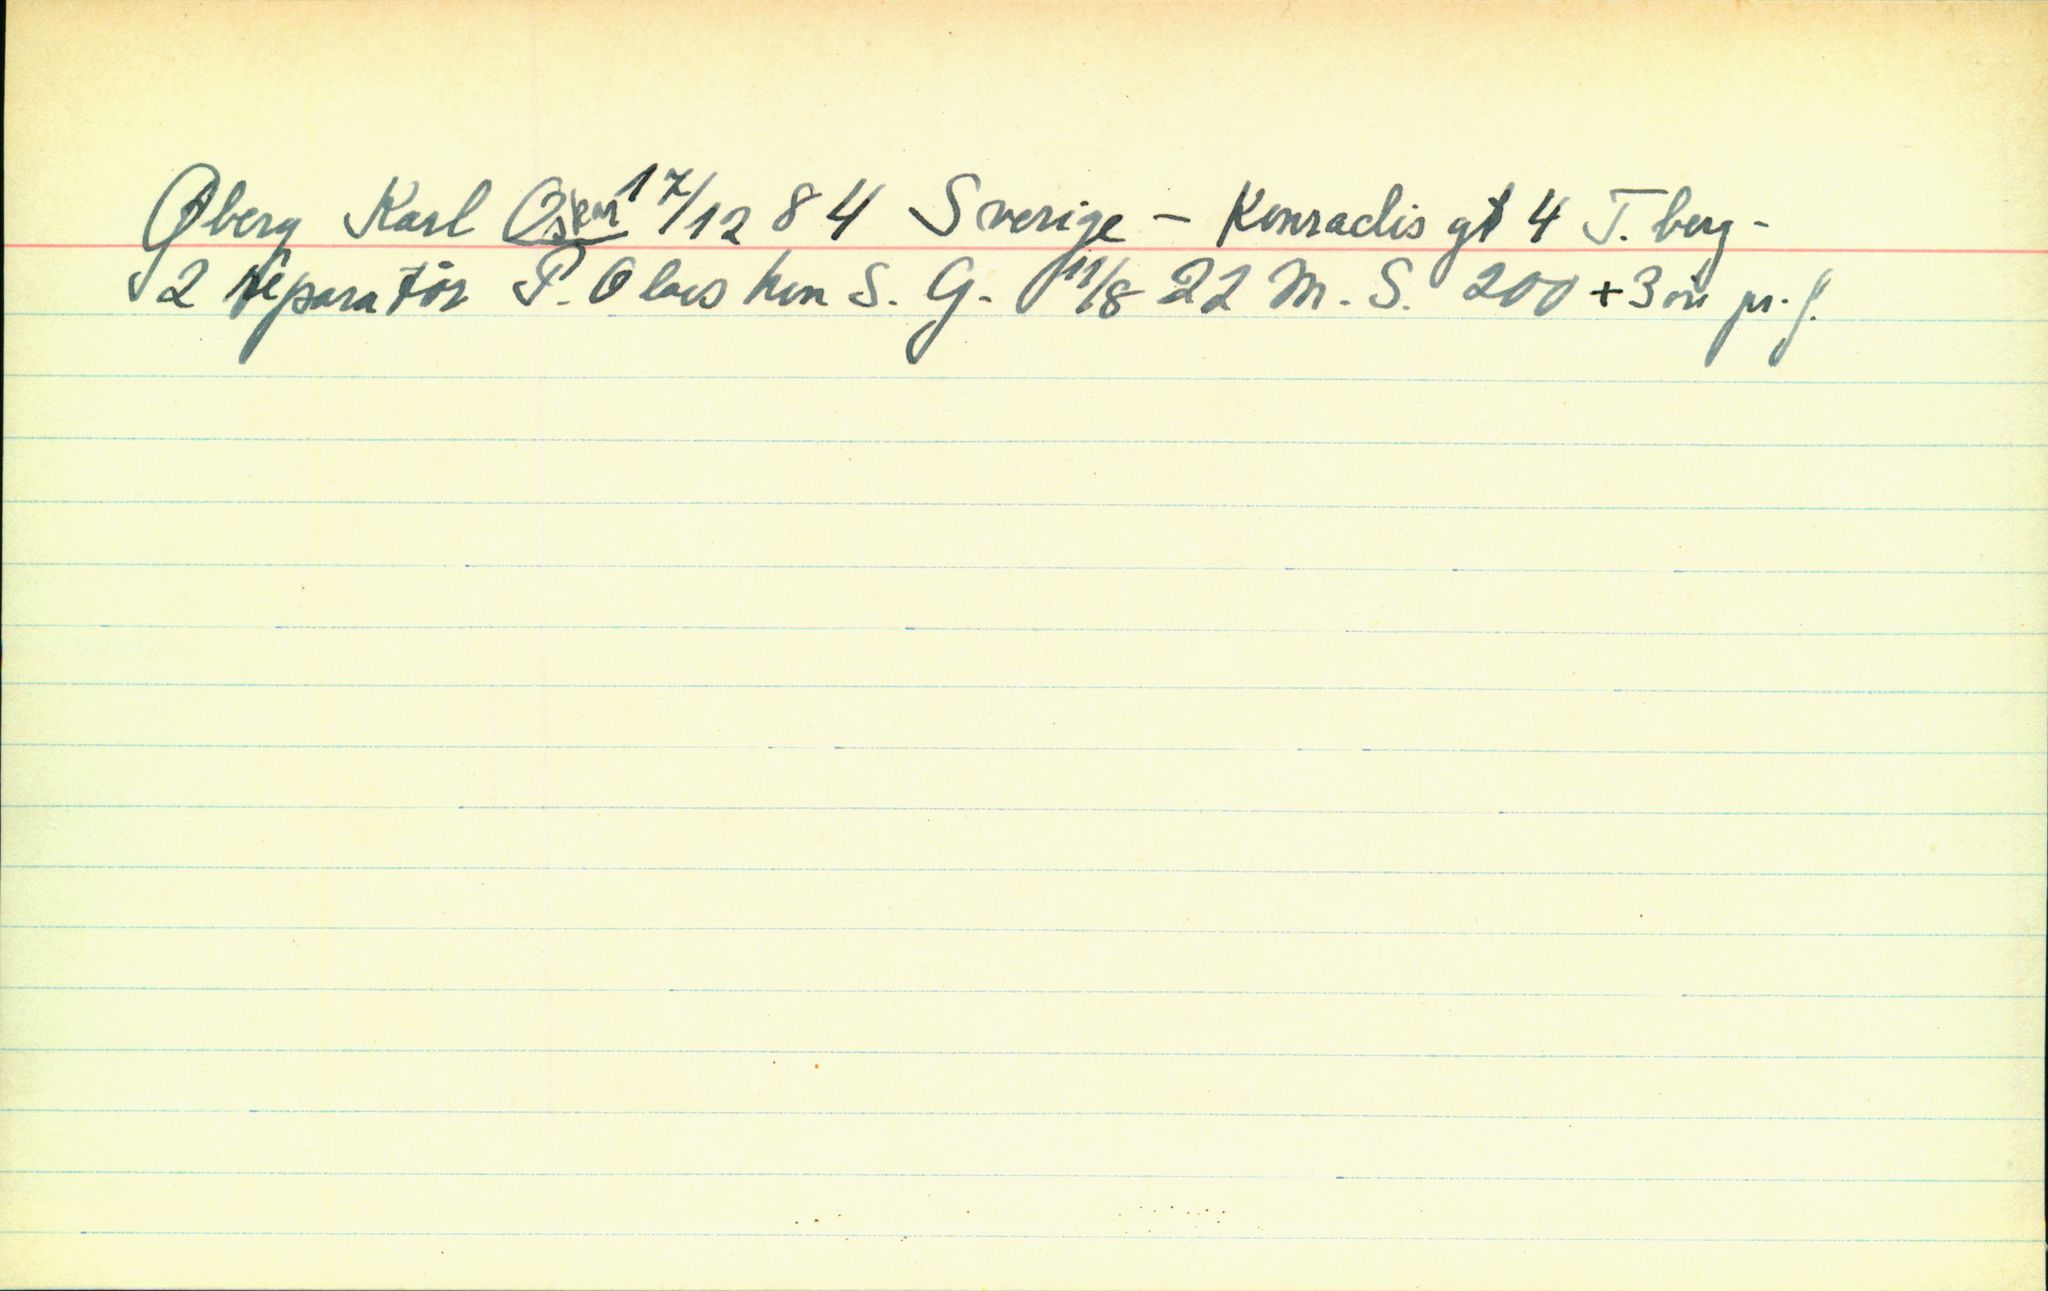 Øberg Karl Oskar 17/12 84 Sverige - Konradis gt 4 T.berg-
2 reparatör P. Olavs hvn S. G. 11/8 22 M. S. 200 + 3 øre pr. f.